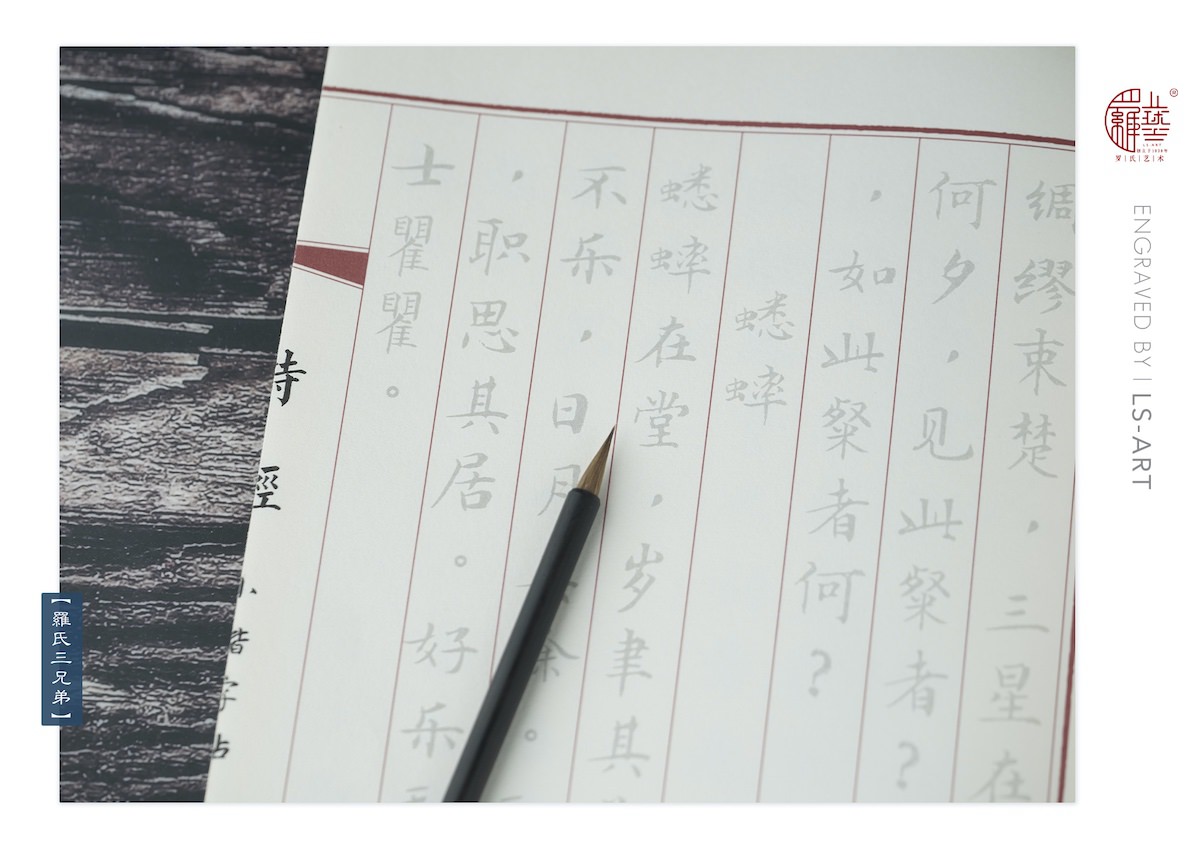 绸缪束楚，三星在
何夕，见此粲者？
，如此粲者何？
蟋蟀
蟋蟀在堂，岁聿其
不乐，日月
，职思其居。好乐
士瞿瞿。
【羅氏三兄弟】
罗|氏|艺|术
ENGRAVED BY | LS-ART